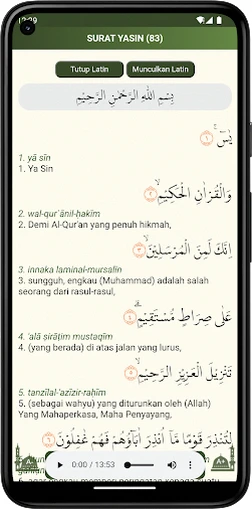 12:29
SURAT YASIN (83)
Tutup Latin Munculkan Latin
بِسْمِ اللّٰهِ الرَّحْمٰنِ الرَّحِيْمِ
يٰسۤ ۚ ١
1. yā sīn
1. Ya Sin
وَالْقُرْاٰنِ الْحَكِيْمِۙ ٢
2. wal-qur`ānil-ḥakīm
2. Demi Al-Qur'an yang penuh hikmah,
اِنَّكَ لَمِنَ الْمُرْسَلِيْنَۙ ٣
3. innaka laminal-mursalīn
3. sungguh, engkau (Muhammad) adalah salah
seorang dari rasul-rasul,
عَلٰى صِرَاطٍ مُّسْتَقِيْمٍۗ ٤
4. 'alā ṣirāṭim mustaqīm
4. (yang berada) di atas jalan yang lurus,
تَنْزِيْلَ الْعَزِيْزِ الرَّحِيْمِۙ ٥
5. tanzīlal-'azīzir-raḥīm
5. (sebagai wahyu) yang diturunkan oleh (Allah)
Yang Mahaperkasa, Maha Penyayang,
لِتُنْذِرَ قَوْمًا مَّآ اُنْذِرَ اٰبَاۤؤُهُمْ فَهُمْ غٰفِلُوْنَ ٦
0:00 / 13:53